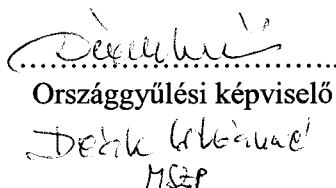 Országgyűlési képviselő
Deák Istvánné
MSZP